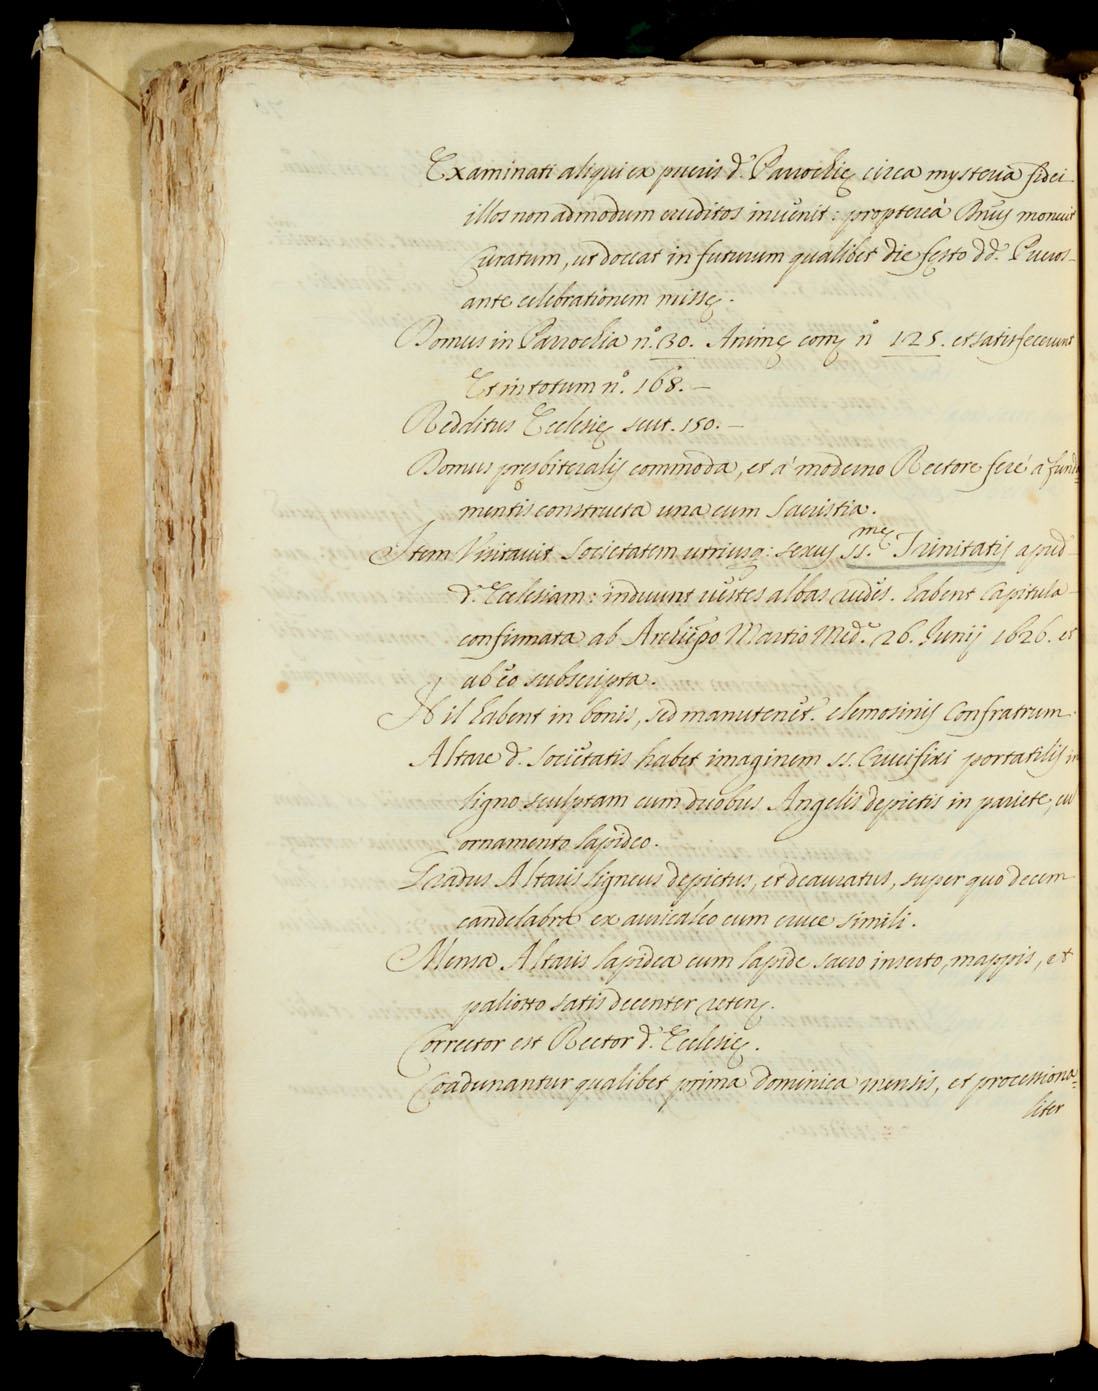 Examinati aliqui ex pueris d.ᵉ Parrochię circa mysteria fidei
illos non admodum eruditos invenit: proptereà monuit
Curatum, ut doceat in futurum qualibet die festo dd. Pueros
ante celebrationem missę.
Domus in Parrochia n.º 30. Animę comᵉ n.º 125. et satisfecerunt
Et in totum n.º 168.—
Redditus Ecclesię scut. 150.—
Domus presbiteralis commoda, et à moderno Rectore ferè à funda=
mentis constructa una cum Sacristia.
Item Visitavit Societatem utriusq: sexus SS.ᵐᵉ Trinitatis apud
d. Ecclesiam: induunt vestes albas rudes. habent Capitula
confirmata ab Archiepo Martio Med. 26. Junij 1626. et
ab eo subscripta.
Nil habent in bonis, sed manutenet. elemosinis Confratrum.
Altare d. Societatis habet imaginem SS. Crucifixi portatilis in
ligno sculptam cum duobus Angelis depictis in pariete, cu
ornamento lapideo.
Gradus Altaris ligneus depictus, et deauratus, super quo decem
candelabra ex auricalco cum cruce simili.
Mensa Altaris lapidea cum lapide sacro inserto, mappis, et
paliotto satis decenter
Corrector est Rector d. Ecclesię.
Coadunantur qualibet prima dominica mensis, et processiona=
liter